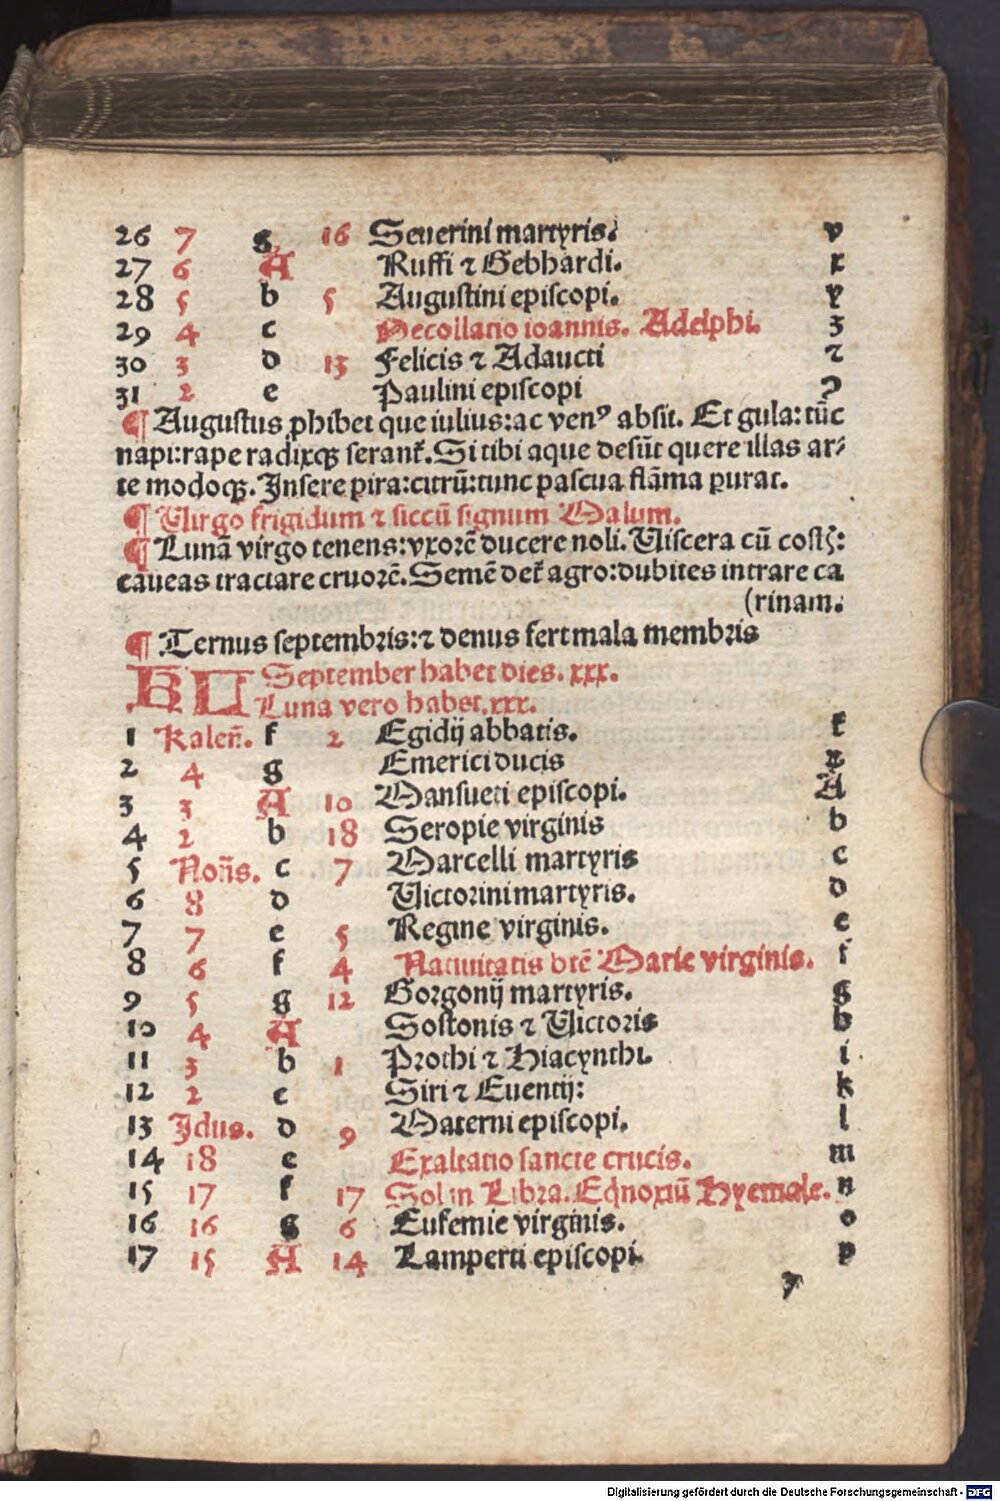 26 7 g 16 Seuerini martyris. v
27 6 A Ruffi ⁊ Gebhardi. x
28 5 b 5 Augustini episcopi. y
29 4 c Decollatio ioannis. Adelphi. z
30 3 d 13 Felicis ⁊ Adaucti ⁊
31 2 e Paulini episcopi ?
¶ Augustus ꝓhibet que iulius: ac venꝰ absit. Et gula: tūc
napi: rape radixqꝫ serant᷑. Si tibi aque desūt quere illas ar⸗
te modoqꝫ. Insere pira: citrū: tunc pascua flāma purat.
¶ Uirgo frigidum ⁊ siccū signum Malum.
¶ Lunā virgo tenens: vxorē ducere noli. Uiscera cū costꝭ:
caueas tractare cruorē. Semē det᷑ agro: dubites intrare ca
(rinam.
¶ Ternus septembris: ⁊ denus fert mala membris
KL September habet dies. xxx.
Luna vero habet. xxx.
1 Kaleñ. f 2 Egidij abbatis. t
2 4 g Emerici ducis x
3 3 A 10 Mansueti episcopi. A
4 2 b 18 Seropie virginis b
5 Noñs. c 7 Marcelli martyris c
6 8 d Uictorini martyris. d
7 7 e 5 Regine virginis. e
8 6 f 4 Natiuitatis btē Marie virginis. f
9 5 g 12 Gorgonij martyris. g
10 4 A Sostonis ⁊ Uictoris h
11 3 b 1 Prothi ⁊ Hiacynthi. i
12 2 c Siri ⁊ Euentij: k
13 Idus. d 9 Materni episcopi. l
14 18 e Exaltatio sancte crucis. m
15 17 f 17 Sol in Libra. Eqnoxiū Hyemale. n
16 16 g 6 Eufemie virginis. o
17 15 A 14 Lamperti episcopi. p
Digitalisierung gefördert durch die Deutsche Forschungsgemeinschaft - DFG